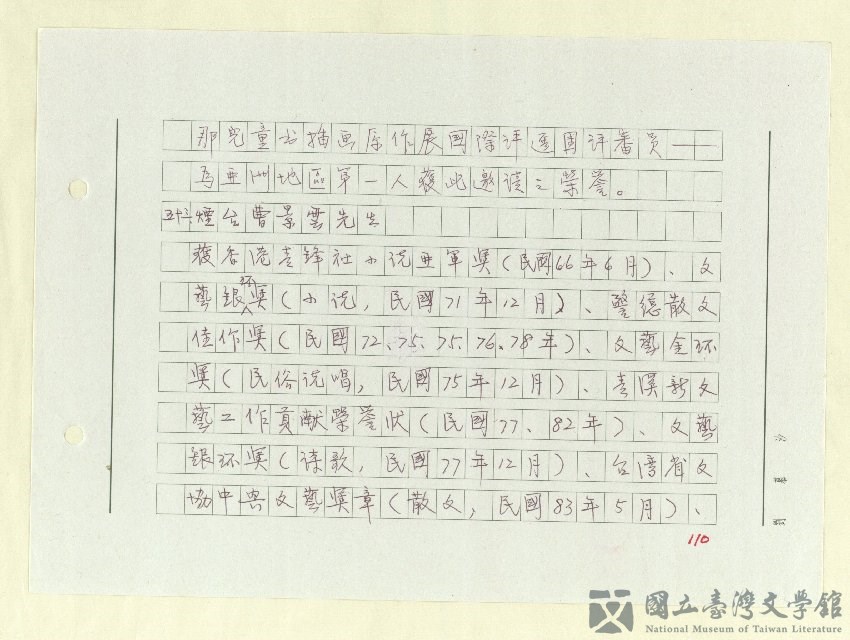 那兒童书插画原作展國際评选团评審员——
為亞洲地區第一人獲此邀请之榮誉。
煙台曹景雲先生
獲香港青锋社小说亚軍奖(民國66年6月)、文
藝銀环奖(小说,民國71年12月)、警德散文
佳作奖(民國72、75、75、76、78年)、文藝金环
奖(民俗说唱,民國75年12月)、青溪新文
藝工作貢献榮誉状(民國77、82年)、文藝
银环奖(诗歌,民國77年12月)、台湾省文
协中兴文藝奖章(散文,民國83年5月)、
110
國立臺灣文學館
National Museum of Taiwan Literature